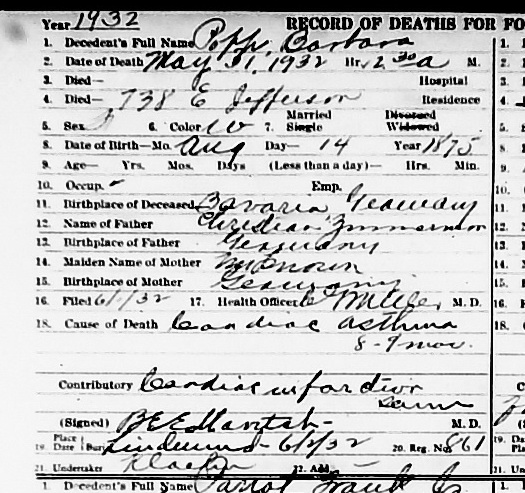 Year 1932 RECORD OF DEATHS FOR FO
1. Decedent's Full Name Popp, Barbara
2. Date of Death May 31, 1932 Hr. 2 30 a M.
3. Died— Hospital
4. Died— 738 E Jefferson Residence
5. Sex 6. Color W 7. Married Single Divorced Widowed
8. Date of Birth—Mo. Aug Day— 14 Year 1875
9. Age— Yrs. Mos. Days (Less than a day)— Hrs. Min.
10. Occup. - Emp.
11. Birthplace of Deceased Bavaria Germany
12. Name of Father Christian Zimmerman
13. Birthplace of Father Germany
14. Maiden Name of Mother Unknown
15. Birthplace of Mother Germany
16. Filed 6/1/32 17. Health Officer Miller M. D.
18. Cause of Death Cardiac asthma
8-9 mos.
Contributory Cardiac infarction
same
(Signed) M. D.
19. Place Date (Buri Lindenwood 6/2/32 20. Reg. No. 861
21. Undertaker Klaehn 22. Add.
1. Decedent's Full Name Parrot Frank